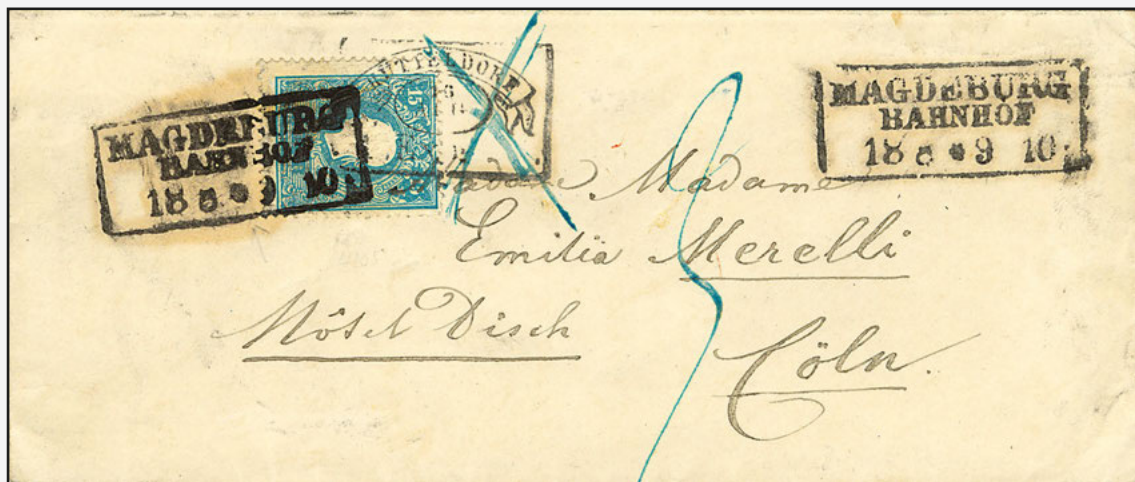 MAGDEBURG
BAHNHOF
18 8 • 9 10
15
HÜTTELDORF
MAGDEBURG
BAHNHOF
18 8 • 9 10
Madame
Emilia Merelli
Hôtel Disch
Cöln.